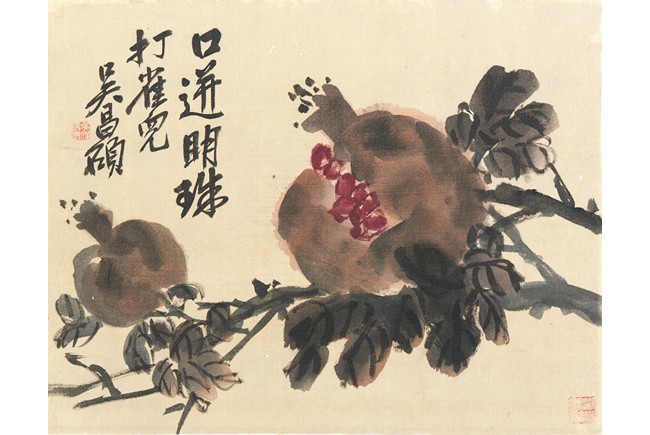 口迸明珠
打雀兒
吴昌碩